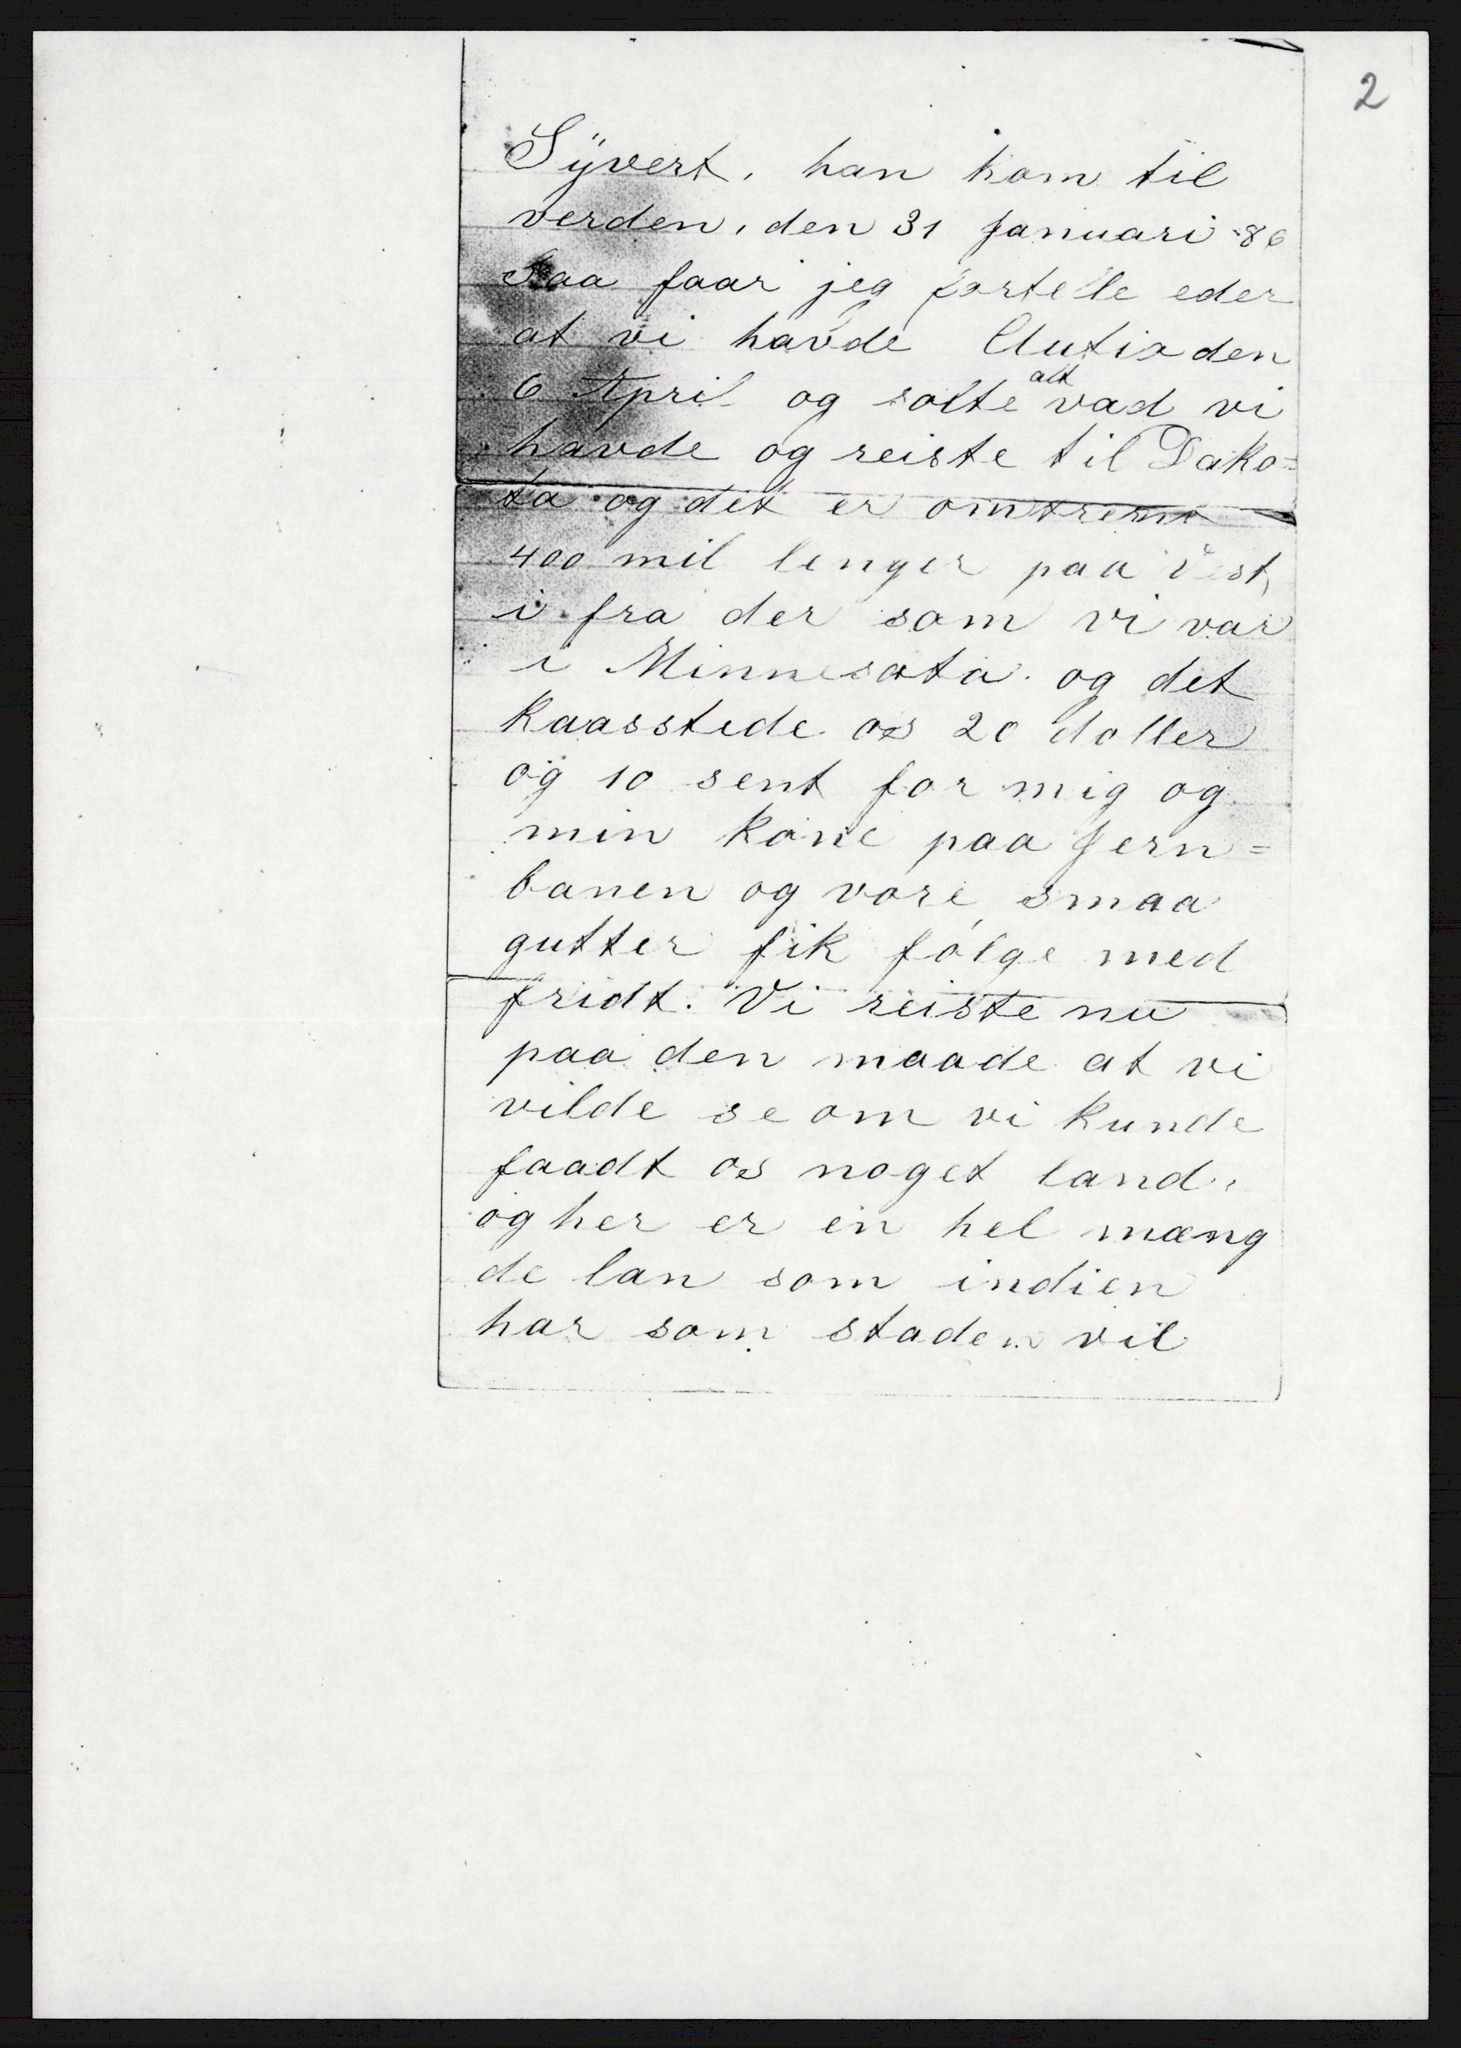 2
Syvert, han kom til
verden, den 31 Januari -86
Saa faar jeg fortelle eder
at vi havde Autio den
6 April og solte alt vad vi
havde og reiste til Dako=
ta og det er omtrent
400 mil lenger paa Vest,
i fra der som vi var
i Minnesota. og det
kaasstede os 20 doller
og 10 sent for mig og
min kone paa Jern=
banen og vore smaa
gutter fik følge med
fridt. Vi reiste nu
paa den maade at vi
vilde se om vi kunde
faadt os noget land,
og her er en hel mæng
de lan som indien
har som staden vil